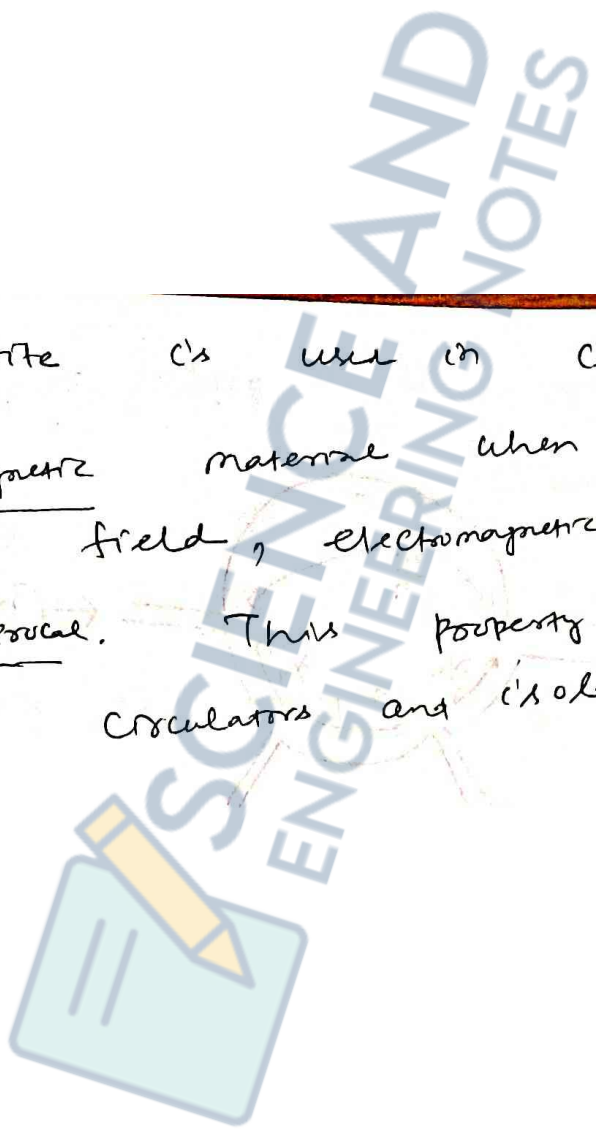 SCIENCE AND
ENGINEERING NOTES
is used in
material when
field, electromagnetic
This property
circulators and